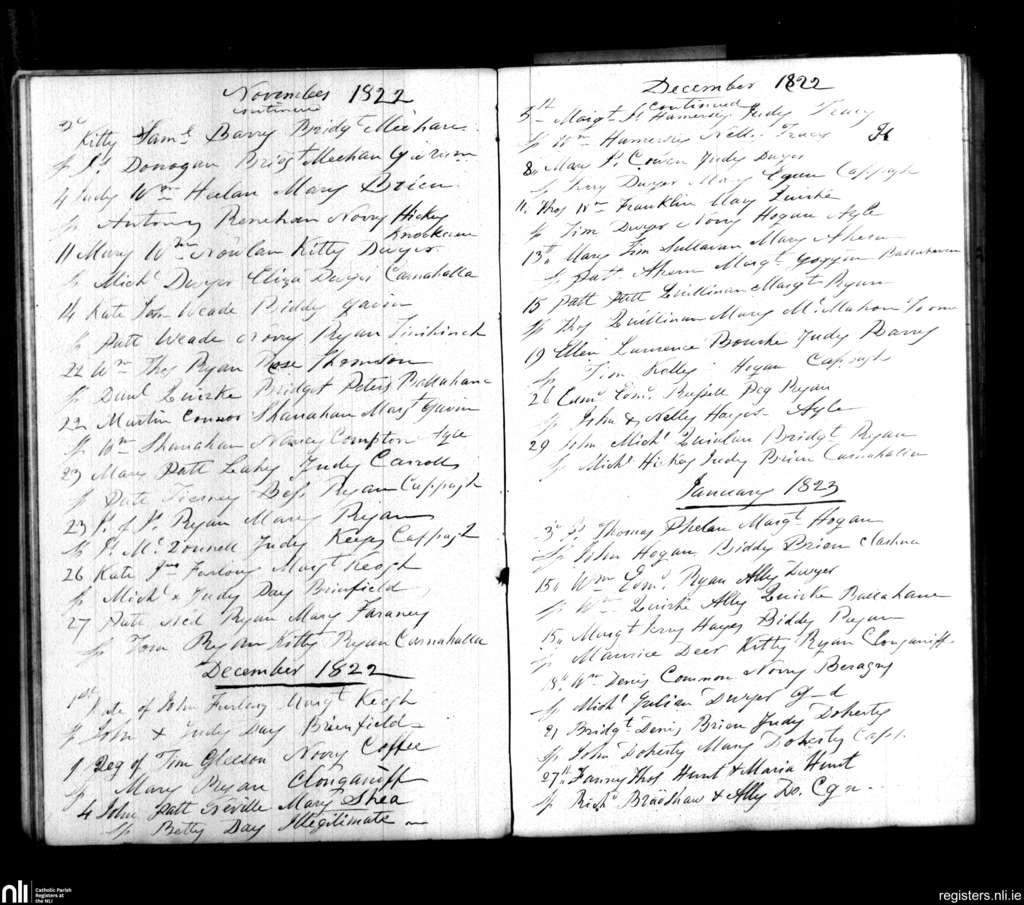 November 1822
continued
3d Kitty Saml Barry Bridgt Meehan
Sp Js Donogan Bridgt Meehan
4 Judy Wm Mary Brien
Sp Antony Renehan Norry Hickey
11 Mary Wm Nowlan Kitty Dwyer
Sp Michl Dwyer Eliza Dwyer Carnahalla
14 Kate Tom Weade Biddy Gavin
Sp Patt Weade Norry Ryan
22 Wm Thos Ryan Rose Thomson
Sp Danl Quirke Bridget Peters Ballahane
22 Martin Connor Shanahan Margt Gavin
Sp Wm Shanahan Nancy Compton Ayle
23 Mary Patt Leahy Judy Carroll
Sp Patt Tierney Bess Ryan Cappagh
23 P. of P. Ryan Mary Ryan
Sp P. McDonnell Judy Keefe Cappagh
26 Kate Jno Furlong Margt Keogh
Sp Michl & Judy Day Brienfield
27 Patt Neil Ryan Mary Faraney
Sp Tom Ryan Kitty Ryan Carnahalla
December 1822
1st Kate of John Furlong Margt Keogh
Sp John & Judy Day Brienfield
1 Peg of Tim Gleeson Norry Coffee
Sp Mary Ryan Clonganiff
4 John Patt Neville Mary Shea
Sp Betty Day Illegitimate
December 1822
continued
5th Margt Js Hamersly Judy Tracy
Sp Wm Hamersly Nelly Tracy
8 Mary Js Cowen Judy Dwyer
Sp Dwyer Mary Egan Cappagh
11 Thos Wm Franklin Mary Quirke
Sp Tim Dwyer Norry Hogan Ayle
13th Mary Tim Sullavan Mary Ahern
Sp Patt Ahern Margt Goggin Ballahane
15 Patt Patt Quillinan Margt Ryan
Sp Thos Quillinan Mary McMahon Toom
19 Ellen Laurence Bourke Judy Barry
Sp Tim Kelly Hogan Cappagh
26 Edmd Edmd Russell Peg Ryan
Sp John & Nelly Hayes Ayle
29 John Michl Quinlan Bridgt Ryan
Sp Michl Hickey Judy Brien Carnahalla
January 1823
3d Js Thomas Phelan Margt Hogan
Sp John Hogan Biddy Brien Clashna
15 Wm Edmd Ryan Ally Dwyer
Sp Wm Quirke Ally Quirke Ballahane
15 Margt Jerry Hayes Biddy Ryan
Sp Maurice Deer Kitty Ryan Clonganiff
18 Wm Denis Common Norry Beragny
Sp Michl Julian Dwyer G-d
21 Bridgt Denis Brien Judy Doherty
Sp John Doherty Mary Doherty Capp.
27th Fanny Thos Hunt & Maria Hunt
Sp Richd Bradshaw & Ally Do. Cgn
nli
Catholic Parish
Registers at
the NLI
registers.nli.ie